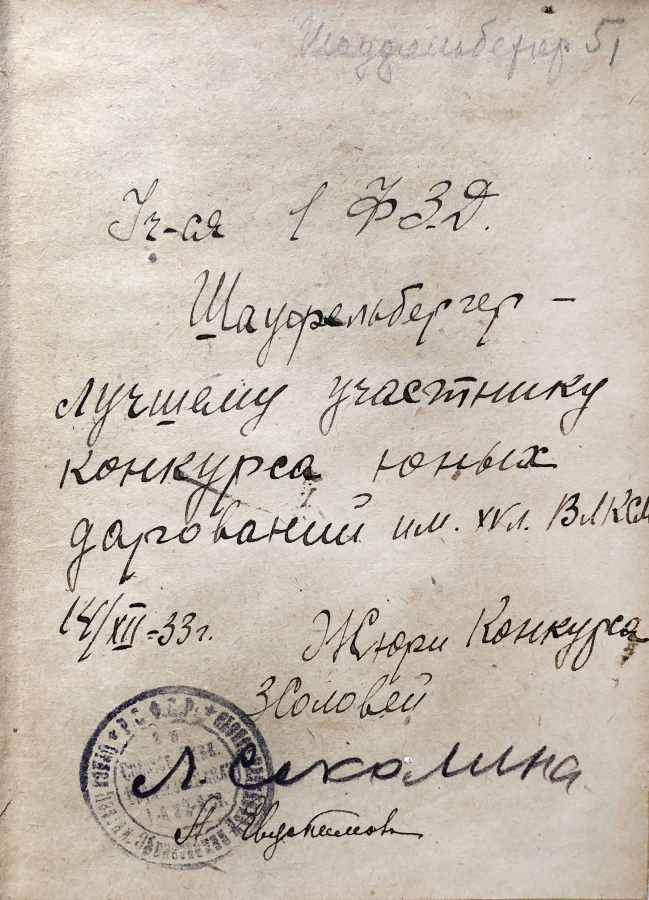 Шауфельбергер 51
Уч-ая 1 ФЗД.
Шауфельбергер –
лучшему участнику
конкурса юных
дарований им. XV л. ВЛКСМ
14/XII-33 г.
Жюри Конкурса
ЗСоловей
Р.С.Ф.С.Р.